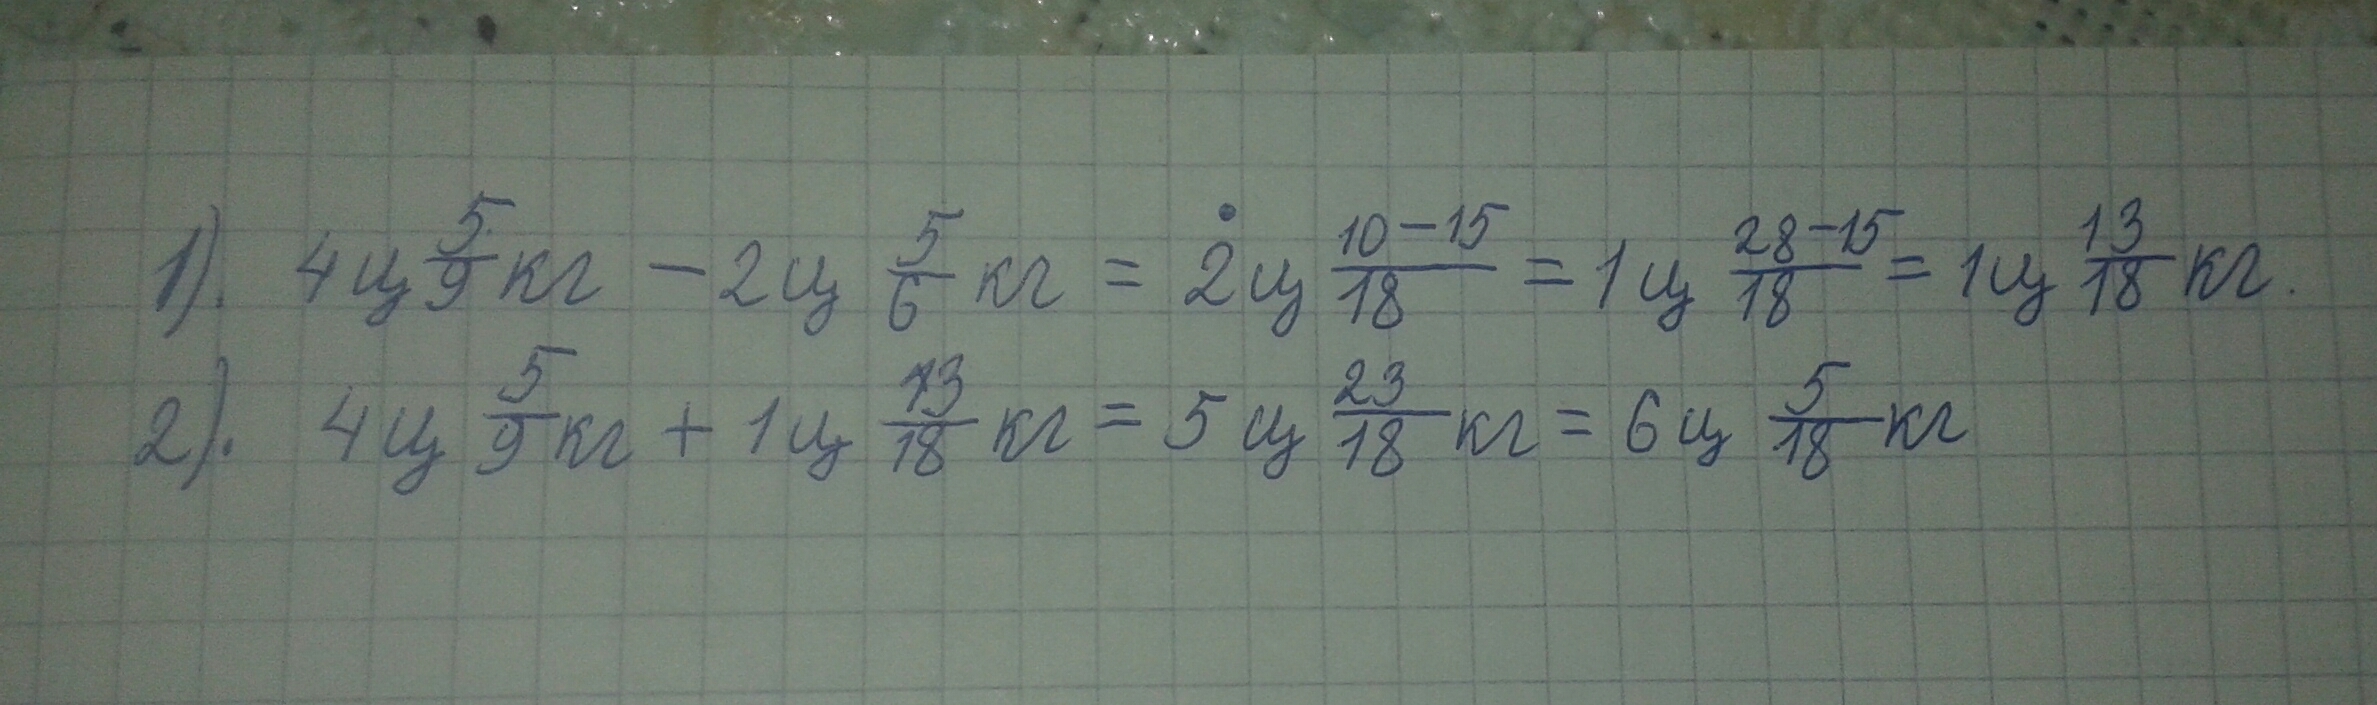 1). 4ц 5/9 кг − 2ц 5/6 кг = 2ц (10−15)/18 = 1ц (28−15)/18 = 1ц 13/18 кг.
2). 4ц 5/9 кг + 1ц 13/18 кг = 5ц 23/18 кг = 6ц 5/18 кг